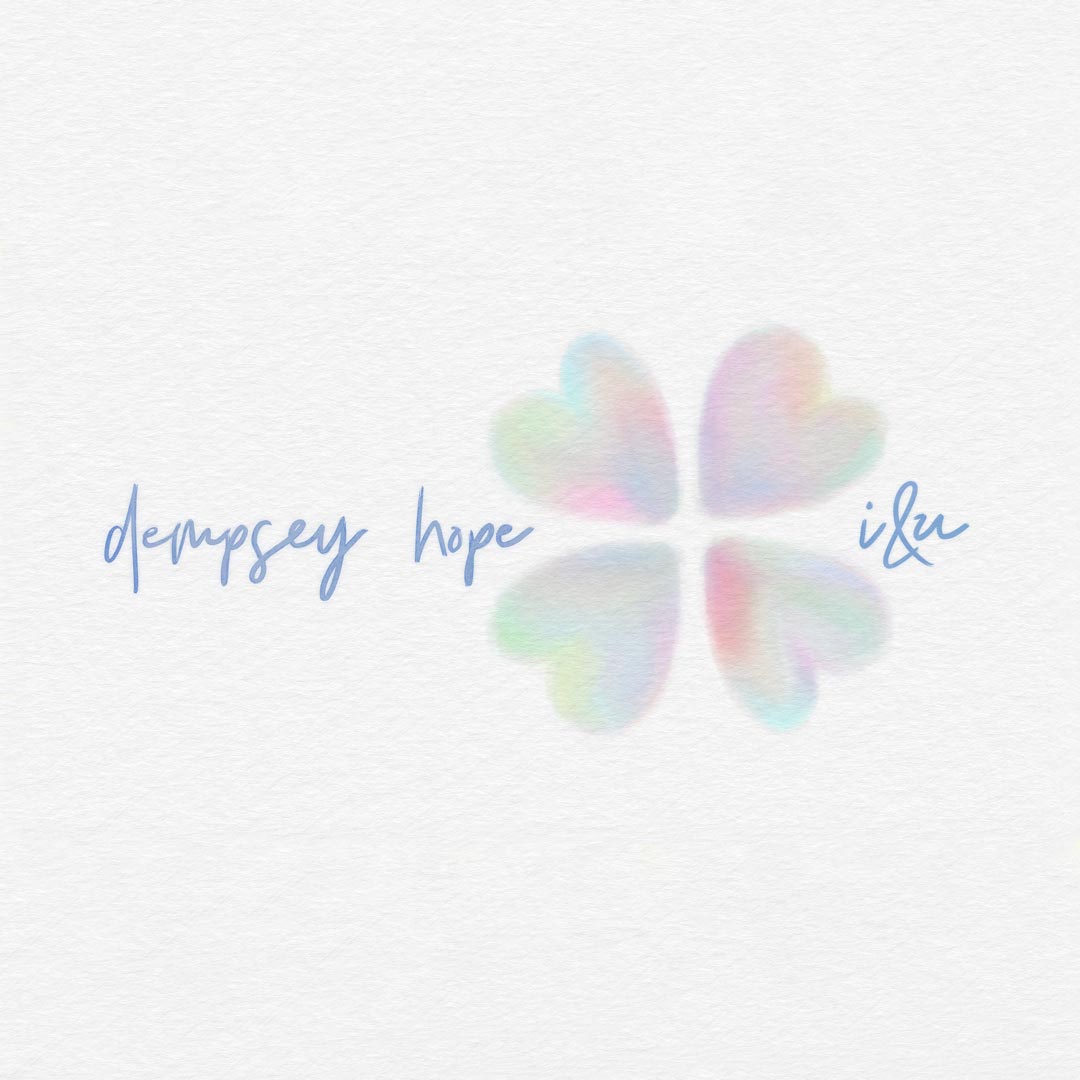 dempsey hope i&u